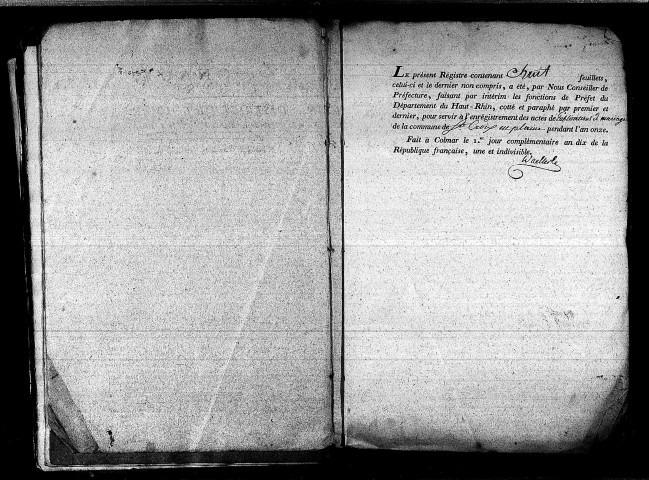 Le présent Régistre contenant huit feuillets,
celui-ci et le dernier non compris, a été, par Nous Conseiller de
Préfecture, faisant par intérim les fonctions de Préfet du
Département du Haut-Rhin, cotté et paraphé par premier et
dernier, pour servir à l'enrégistrement des actes de mariage
de la commune de Ste Croix en plaine pendant l'an onze.
Fait à Colmar le 1.er jour complémentaire an dix de la
République française, une et indivisible.